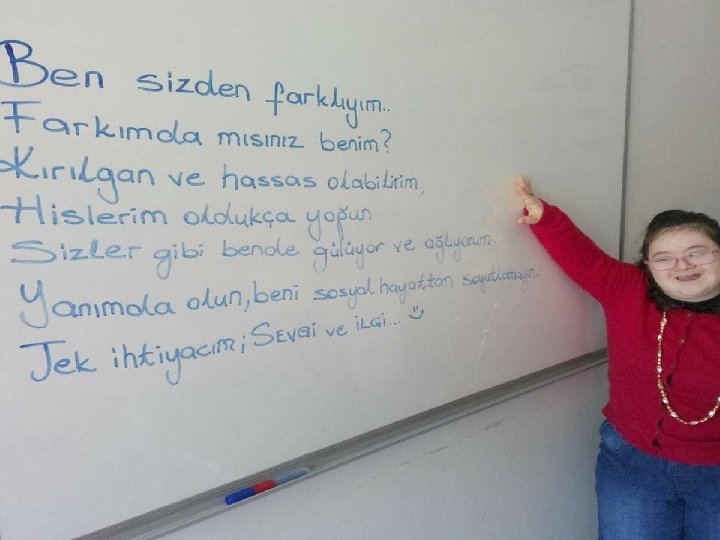 Ben sizden farklıyım..
Farkımda mısınız benim?
Kırılgan ve hassas olabilirim,
Hislerim oldukça yoğun
Sizler gibi bende gülüyor ve ağlıyorum.
Yanımda olun, beni sosyal hayattan soyutlamayın.
Tek ihtiyacım; SEVGi ve iLGi... :)